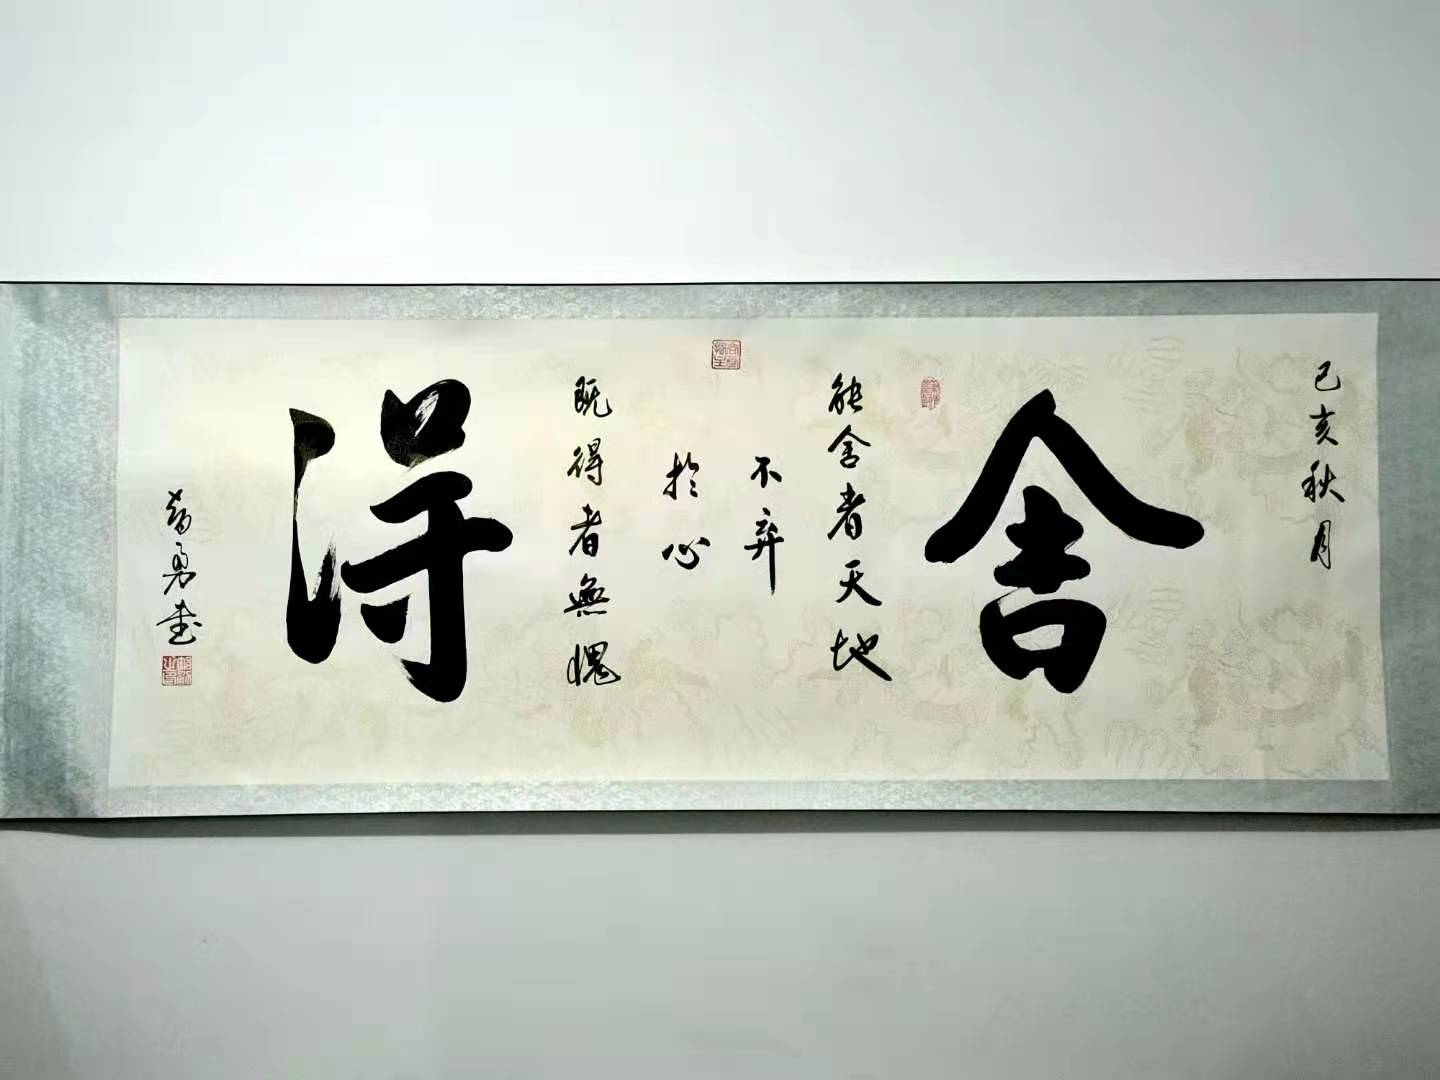 己亥秋月
舍
能舍者天地
不弃
於心
既得者無愧
得